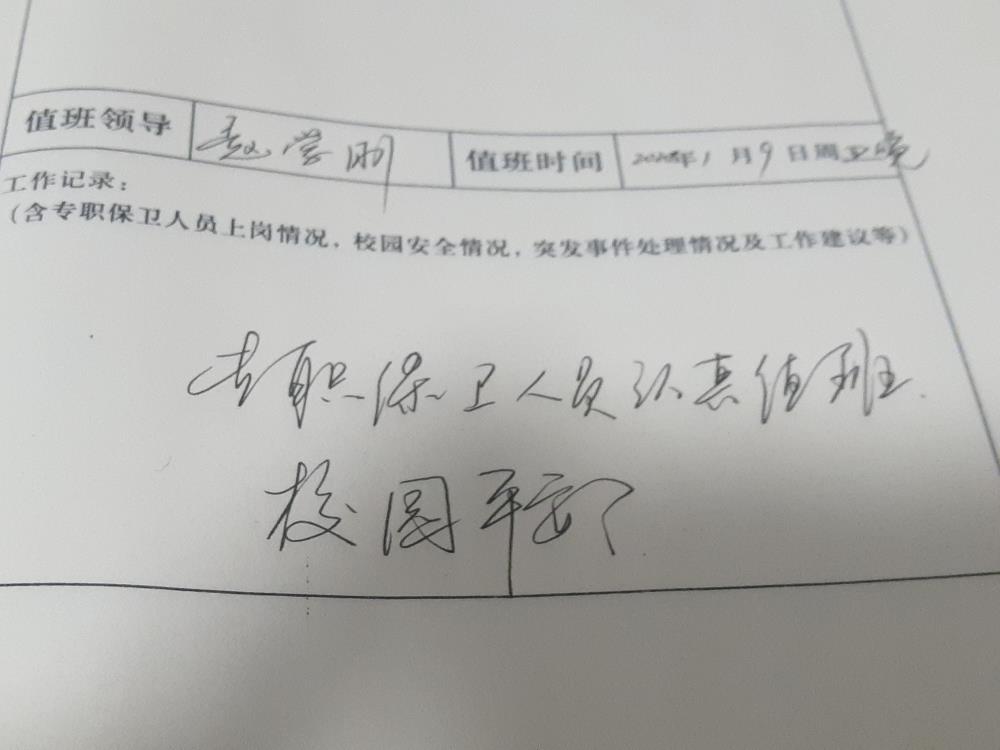 值班领导 赵学刚 值班时间 2020年1月9日周卫晚
工作记录：
（含专职保卫人员上岗情况，校园安全情况，突发事件处理情况及工作建议等）
专职保卫人员认真值班.
校园平安